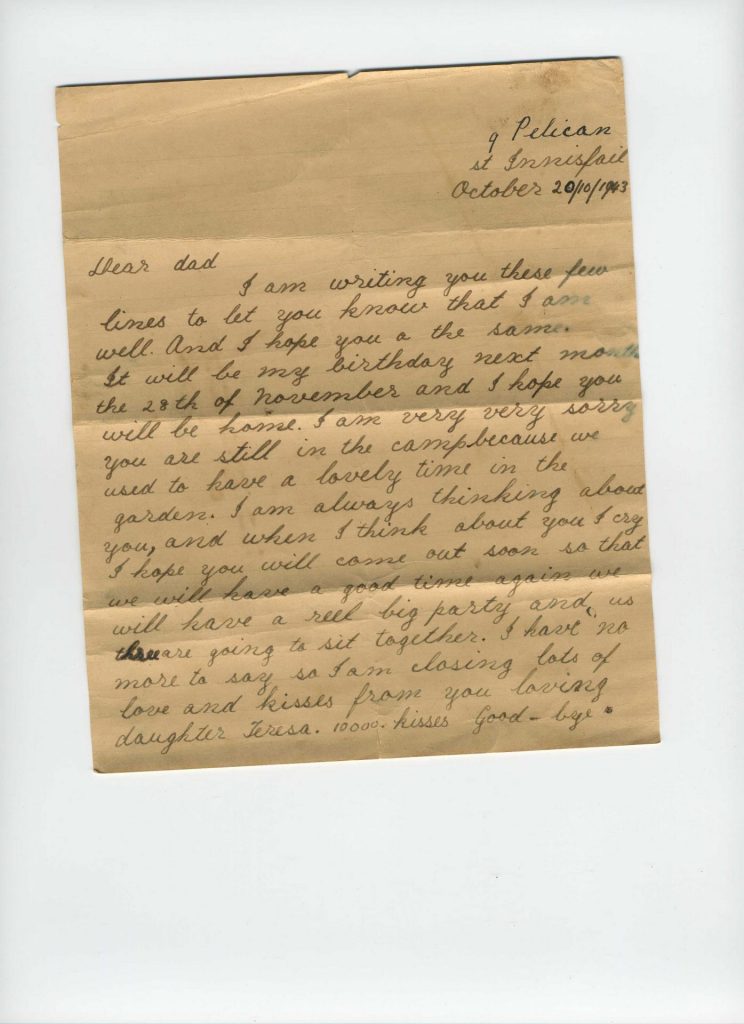 9 Pelican
st Innisfail
October 20/10/1943
Dear dad
I am writing you these few
lines to let you know that I am
well. And I hope you a the same.
It will be my birthday next month
the 28th of November and I hope you
will be home. I am very very sorry
you are still in the campbecause we
used to have a lovely time in the
garden. I am always thinking about
you, and when I think about you I cry
I hope you will come out soon so that
we will have a good time again we
will have a reel big party and, us
three are going to sit together. I have no
more to say so I am closing lots of
love and kisses from you loving
daughter Teresa. 10000. kisses Good - bye.